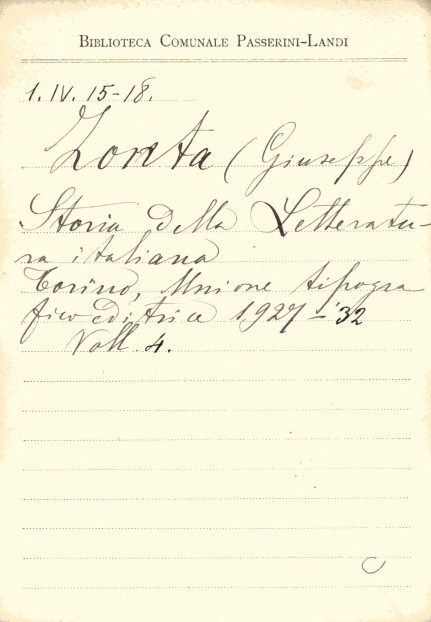 BIBLIOTECA COMUNALE PASSERINI-LANDI
1. IV. 15-18.
Zonta (Giuseppe)
Storia della Letteratu-
ra italiana
Torino, Unione tipogra
fico editrice 1927-'32
Voll. 4.